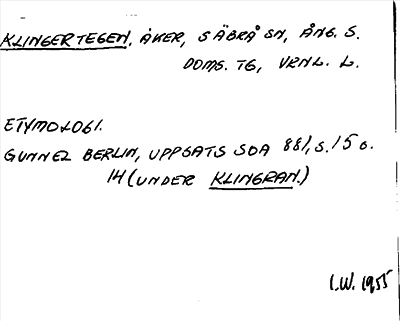 KLINGERTEGEN, ÅKER, SÄBRÅ SN, ÅNG. S.
DOMS. TG, VRNL. L.
ETYMOLOGI.
GUNNEL BERLIN, UPPSATS SOA 881, S. 15 o.
14 (UNDER KLINGRAN.)
I.W. 1955